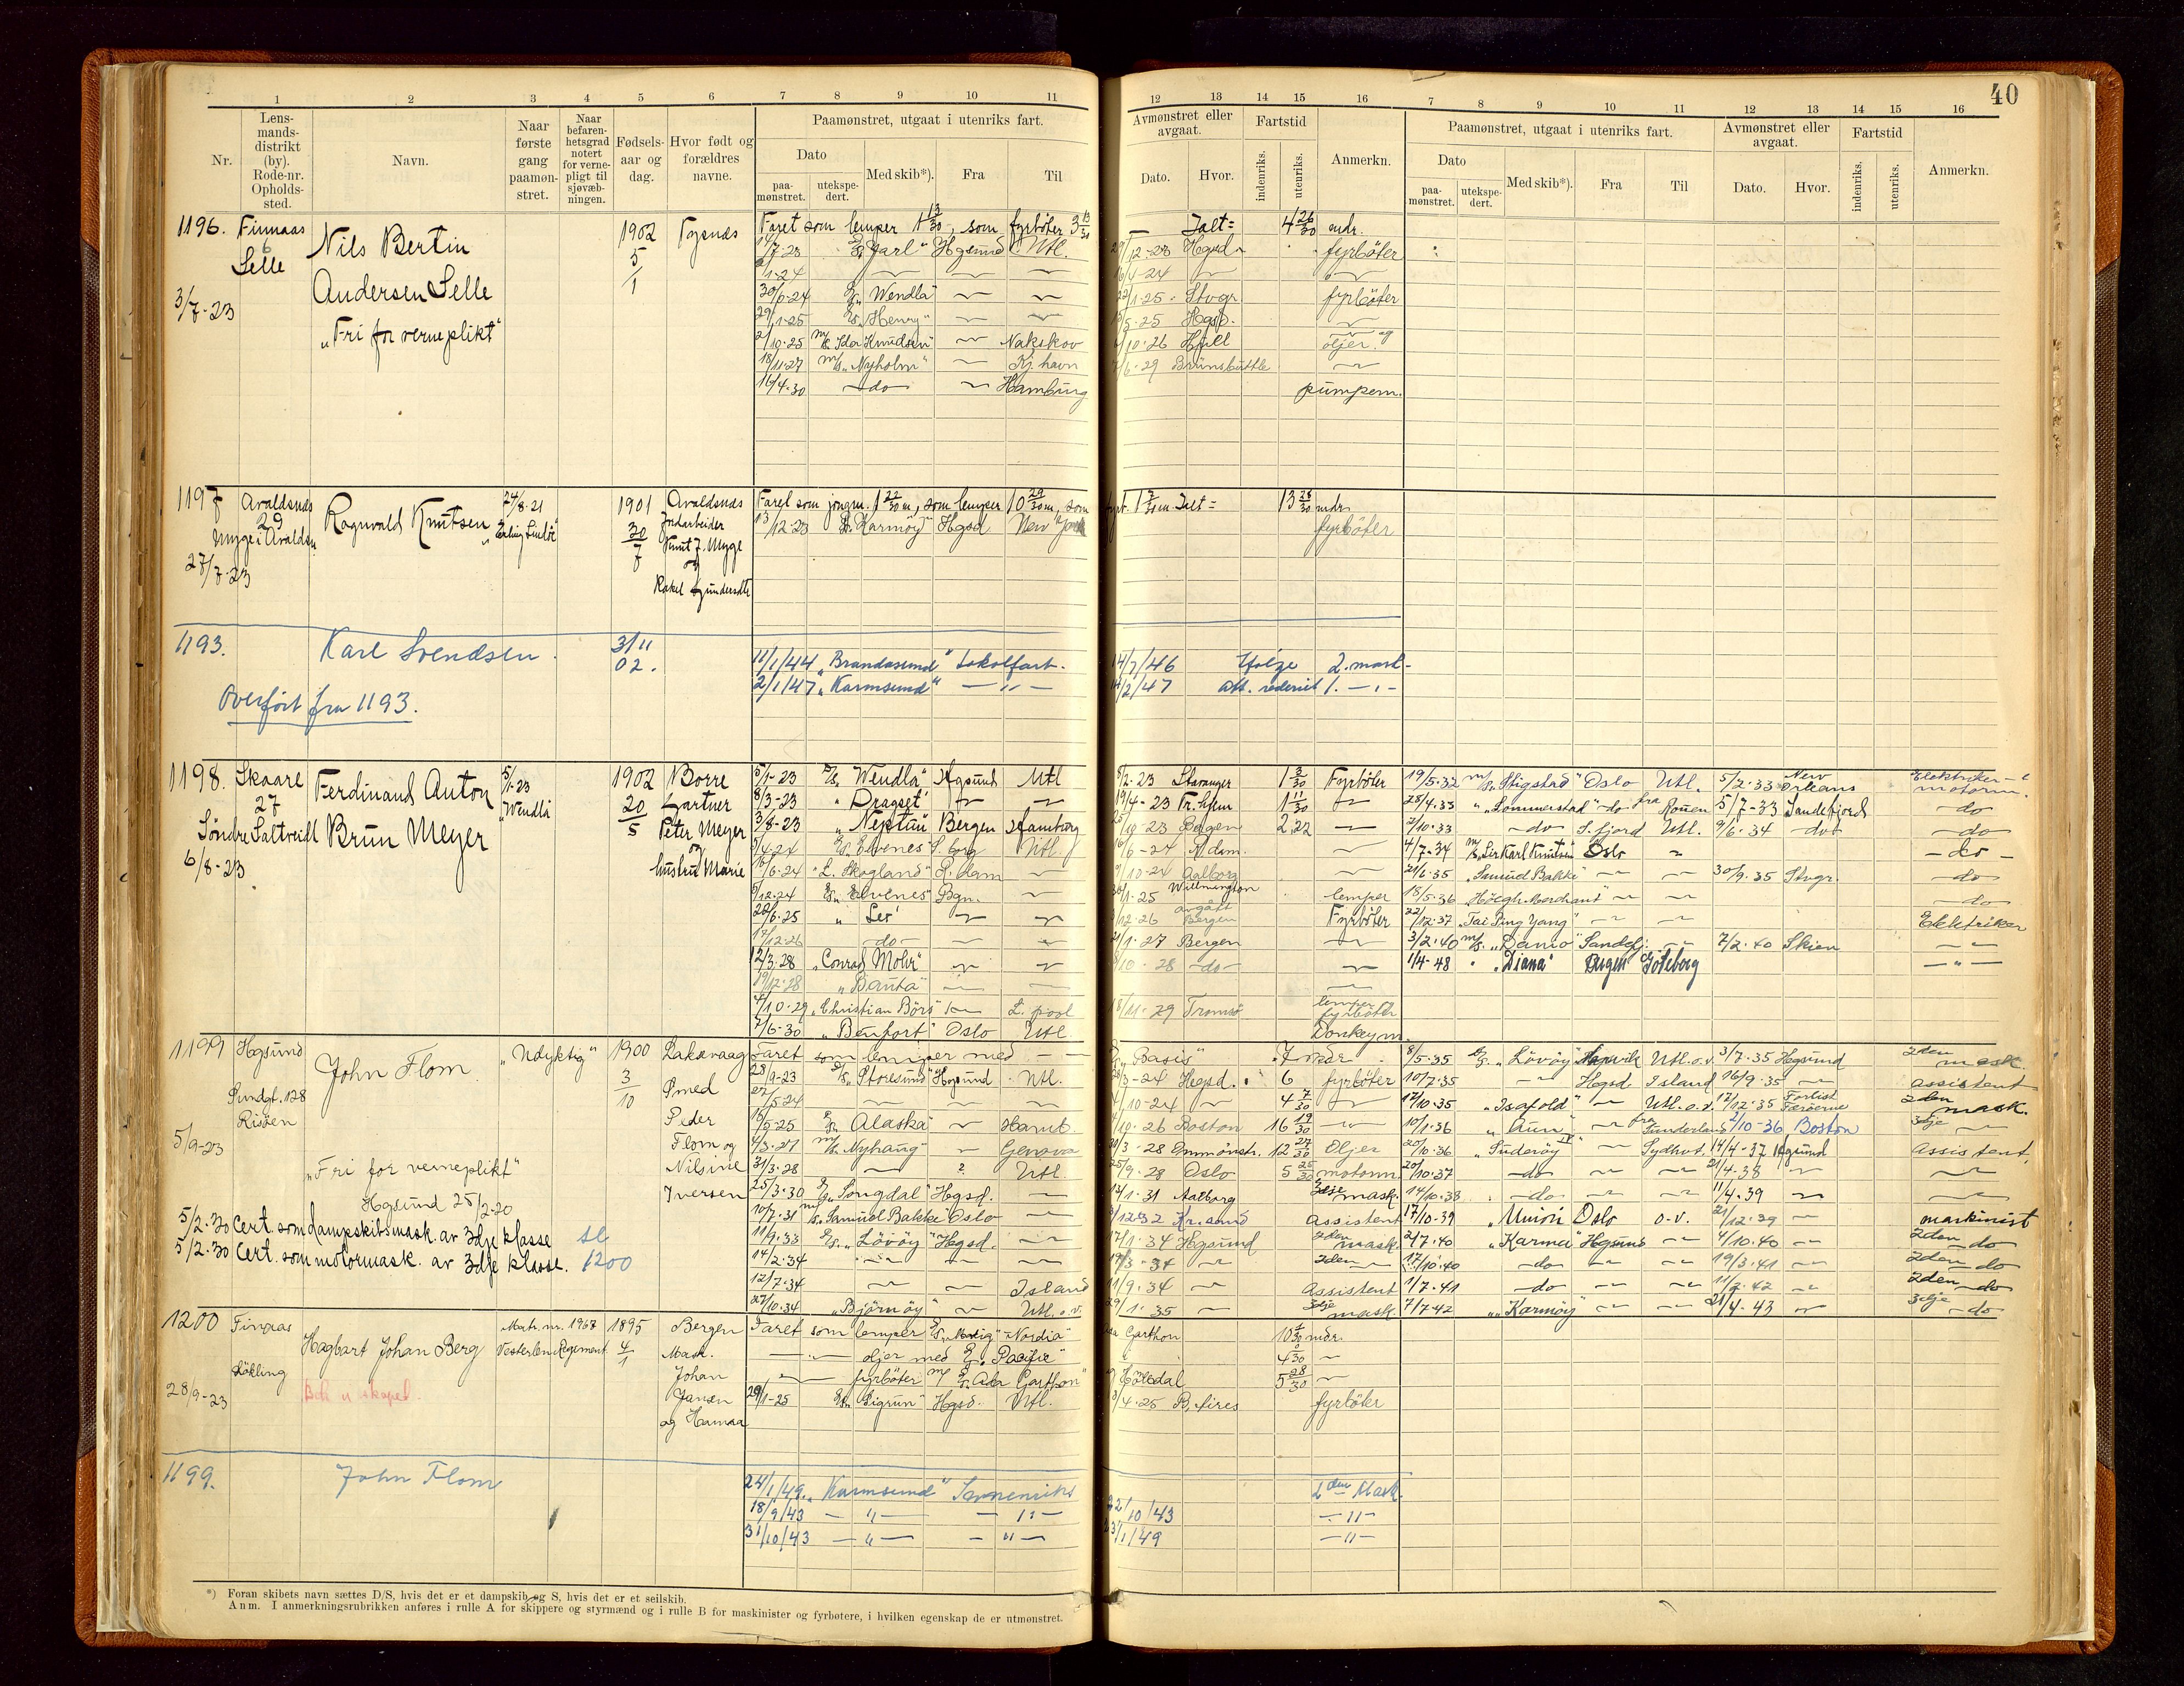 40
1 2 3 4 5 6 7 8 9 10 11 12 13 14 15 16 7 8 9 10 11 12 13 14 15 16
Nr.
Lens-
mands-
distrikt
(by).
Rode-nr.
Opholds-
sted.
Navn.
Naar
første
gang
paamøn-
stret.
Naar
befaren-
hetsgrad
notert
for verne-
pligt til
sjøvæb-
ningen.
Fødsels-
aar og
dag.
Hvor født og
forældres
navne.
Paamønstret, utgaat i utenriks fart.
Dato
paa-
mønstret.
utekspe-
dert.
Med skib*).
Fra
Til
Avmønstret eller
avgaat.
Dato.
Hvor.
Fartstid
indenriks.
utenriks.
Anmerkn.
Paamønstret, utgaat i utenriks fart.
Dato
paa-
mønstret.
utekspe-
dert.
Med skib*).
Fra
Til
Avmønstret eller
avgaat.
Dato.
Hvor.
Fartstid
indenriks.
utenriks.
Anmerkn.
1196. Finnaas
6
Selle
3/7-23
Nils Bertin
Andersen Selle
"Fri for verneplikt"
1902
5
1
Føynes
Faret som lemper 1 13/30, som fyrbøter 3 13/30 Ialt = 4 26/30 mdr.
"Jarl" Hgsund Utl. 12-23 Hgsd. fyrbøter
1-24
30/6-24 "Wendla" 1-25 Stvgr. fyrbøter
29/1-25 "Henry" 5-25 Hgsd.
2/10-25 m/s "Ida Knudsen" Nakskov 10-26 Hull oljer
18/11-27 m/s "Nyholm" Kj.havn 6-29 Brünsbüttle
16/4-30 do Hamburg pumpem.
1197 Avaldsnes
29
Myge i Avaldsn.
27/7-23
Ragnvald Knutsen
24/8-21
"Erling Lindøe"
1901
30
7
Avaldsnes
Jordarbeider
Knut J. Myge
og
Rakel Gundersdtr
Faret som jongm. 1 22/30 m, som lemper 10 29/30 m, som fyrb. 1 7/30 m Ialt = 13 28/30 mdr.
13/12-23 "Karmøy" Hgsd New York fyrbøter
1193. Karl Svendsen. 3/11
02.
Overført fra 1193.
11/1/44 "Brandasund" Lokalfart. 14/7/46 Ifølge 2. mask.
2/1/47 "Karmsund" — " — /2/47 att. rederiet 1. — " —
1198. Skaare
27
Søndre Saltveidt
6/8-23
Ferdinand Anton
Brun Meyer
5/1-23
"Wendla"
1902
20
5
Borre
Gartner
Peter Meyer
og
hustru Marie
5/1-23 "Wendla" Hgsund Utl 8/2-23 Stavanger 1 3/30 Fyrbøter
8/3-23 "Dragset" 19/4-23 Tr.hjem 1 11/30
3/8-23 "Neptun" Bergen Hamburg 25/10-23 Bergen 2 22
4-24 "Elvenes" S.borg Utl. 6-24 A.dam
16/6-24 "L. Skogland" R.dam 10-24 Aalborg
5/12-24 "Elvenes" Bgn. 1-25 Willmington lemper
20/6-25 "Ler" 12-26 avgått Bergen Fyrbøter
17/12-26 do 1-27 Bergen
12/3-28 "Conrad Mohr" 10-28 do
19/12-28 "Bauta"
4/10-29 "Christian Börs" L.pool 18/11-29 Tromsø lemper og fyrbøter
7/6-30 "Benfort" Oslo Utl. Donkeym.
19/5-32 m/s "Stigstad" Oslo Utl. 5/2-33 New Orleans Elektriker-
motorm.
25/4-33 "Sommerstad" do fra Rouen 5/7-33 Sandefjord do
2/10-33 do S.fjord Utl. 9/6-34 do do
4/7-34 m/s "Sir Karl Knutsen" Oslo do
21/6-35 "Samuel Bakke" 30/9-35 Stvgr. do
18/5-36 "Høegh Merchant" do
22/12-37 "Tai Ping Yang" Elektriker
3/2-40 m/s "Danio" Sandefj. 7/2-40 Skien
1/4-48 "Diana" Bergen Göteborg — " —
1199 Hgsund
Sundgt. 128
Risøen
5/9-23
John Flom
"Udyktig"
"Fri for verneplikt"
Hgsund 25/2-20
5/2-30 Cert. som dampskibsmask. av 3dje klasse
5/2-30 Cert. som motormask. av 3dje klasse.
se
1200
1900
3
10
Laksevaag
Smed
Peder
Flom og
Nilsine
Iversen
Faret som lemper med "Basis" 7 mdr.
28/9-23 "Storesund" Hgsund Utl. 3-24 Hgsd. 6 fyrbøter
5-24 10-24 4 7/30
16/5-25 "Alaska" Hamb. 10-26 Boston 16 19/30
4/3-27 m/s "Nyhaug" Genova 3-28 Ommönstr. 12 27/30 Oljer
31/3-28 ? Utl. 9-28 Oslo 5 25/30 motorm.
25/3-30 "Songdal" Hgsd. 1-31 Aalborg 3dje mask.
10/7-31 m/s "Samuel Bakke" Oslo 12-32 Kr.sand assistent
11/9-33 "Lövöy" Hgsd. 17/1-34 Hgsund 2den mask.
14/2-34 3-34 2den
12/7-34 Island 11/9-34 Assistent
27/10-34 "Björnöy" Utl. o.v. 29/1-35 3dje mask.
8/5-35 "Lövöy" Utl. o.v. 3/7-35 Hgsund 2den mask.
10/7-35 Hgsd. Island 16/9-35 assistent
17/10-35 "Isafold" Utl. o.v. 17/12-35 Forlist Færøerne 2den mask.
10/1-36 "Aun" fra Sunderland 2/10-36 Boston 3dje
20/10-36 "Suderöy IV" Sydhvt. 14/4-37 Hgsund Assistent.
20/10-37 do 21/4-38
14/10-38 do 11/4-39
17/10-39 "Union" Oslo o.v. 21/12-39 maskinist
2/7-40 "Karma" Hgsund 4/10-40 2den do
17/10-40 do 19/3-41 2den do
1/7-41 do 11/2-42 2den do
7/7-42 "Karmöy" 21/4-43 3dje do
1200 Finnaas
Lökling
28/9-23
Hagbart Johan Berg
Matr. nr. 1967
Vesterlen Regement
1895
4
1
Bergen
Mask.
Johan
Jansen
og Hanna
Faret som lemper "Nordia" Garthon 10 mdr.
oljer med "Pacific" 4
fyrbøter med "Ada Gorthon" Götedal 5 28/30
29/1-25 "Sigrun" Hgsd. Utl. 4-25 B. Aires fyrbøter
1199. John Flom
24/1/49. "Karmsund" Innenriks 2den Mask.
18/9/43 — " — — " — 22/10/43 — " —
31/10/43 — " — — " — 3/1/49 — " —
*) Foran skibets navn sættes D/S, hvis det er et dampskib og S, hvis det er et seilskib.
Anm. I anmerkningsrubrikken anføres i rulle A for skippere og styrmænd og i rulle B for maskinister og fyrbøtere, i hvilken egenskap de er utmønstret.